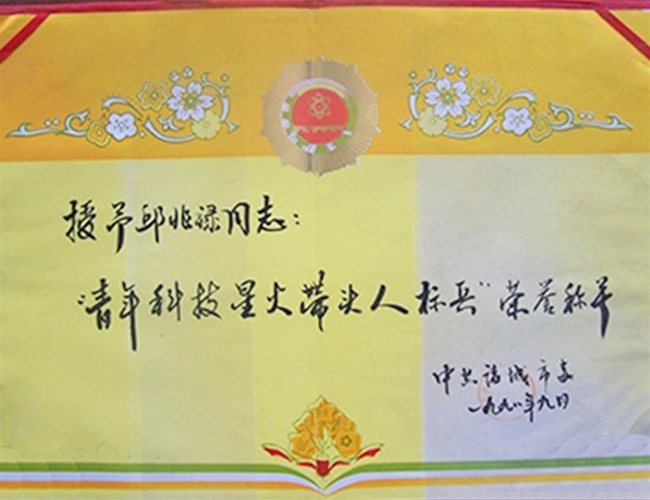 授予邱兆禄同志：
“青年科技星火带头人标兵”荣誉称号
中共诸城市委
一九九一年九月